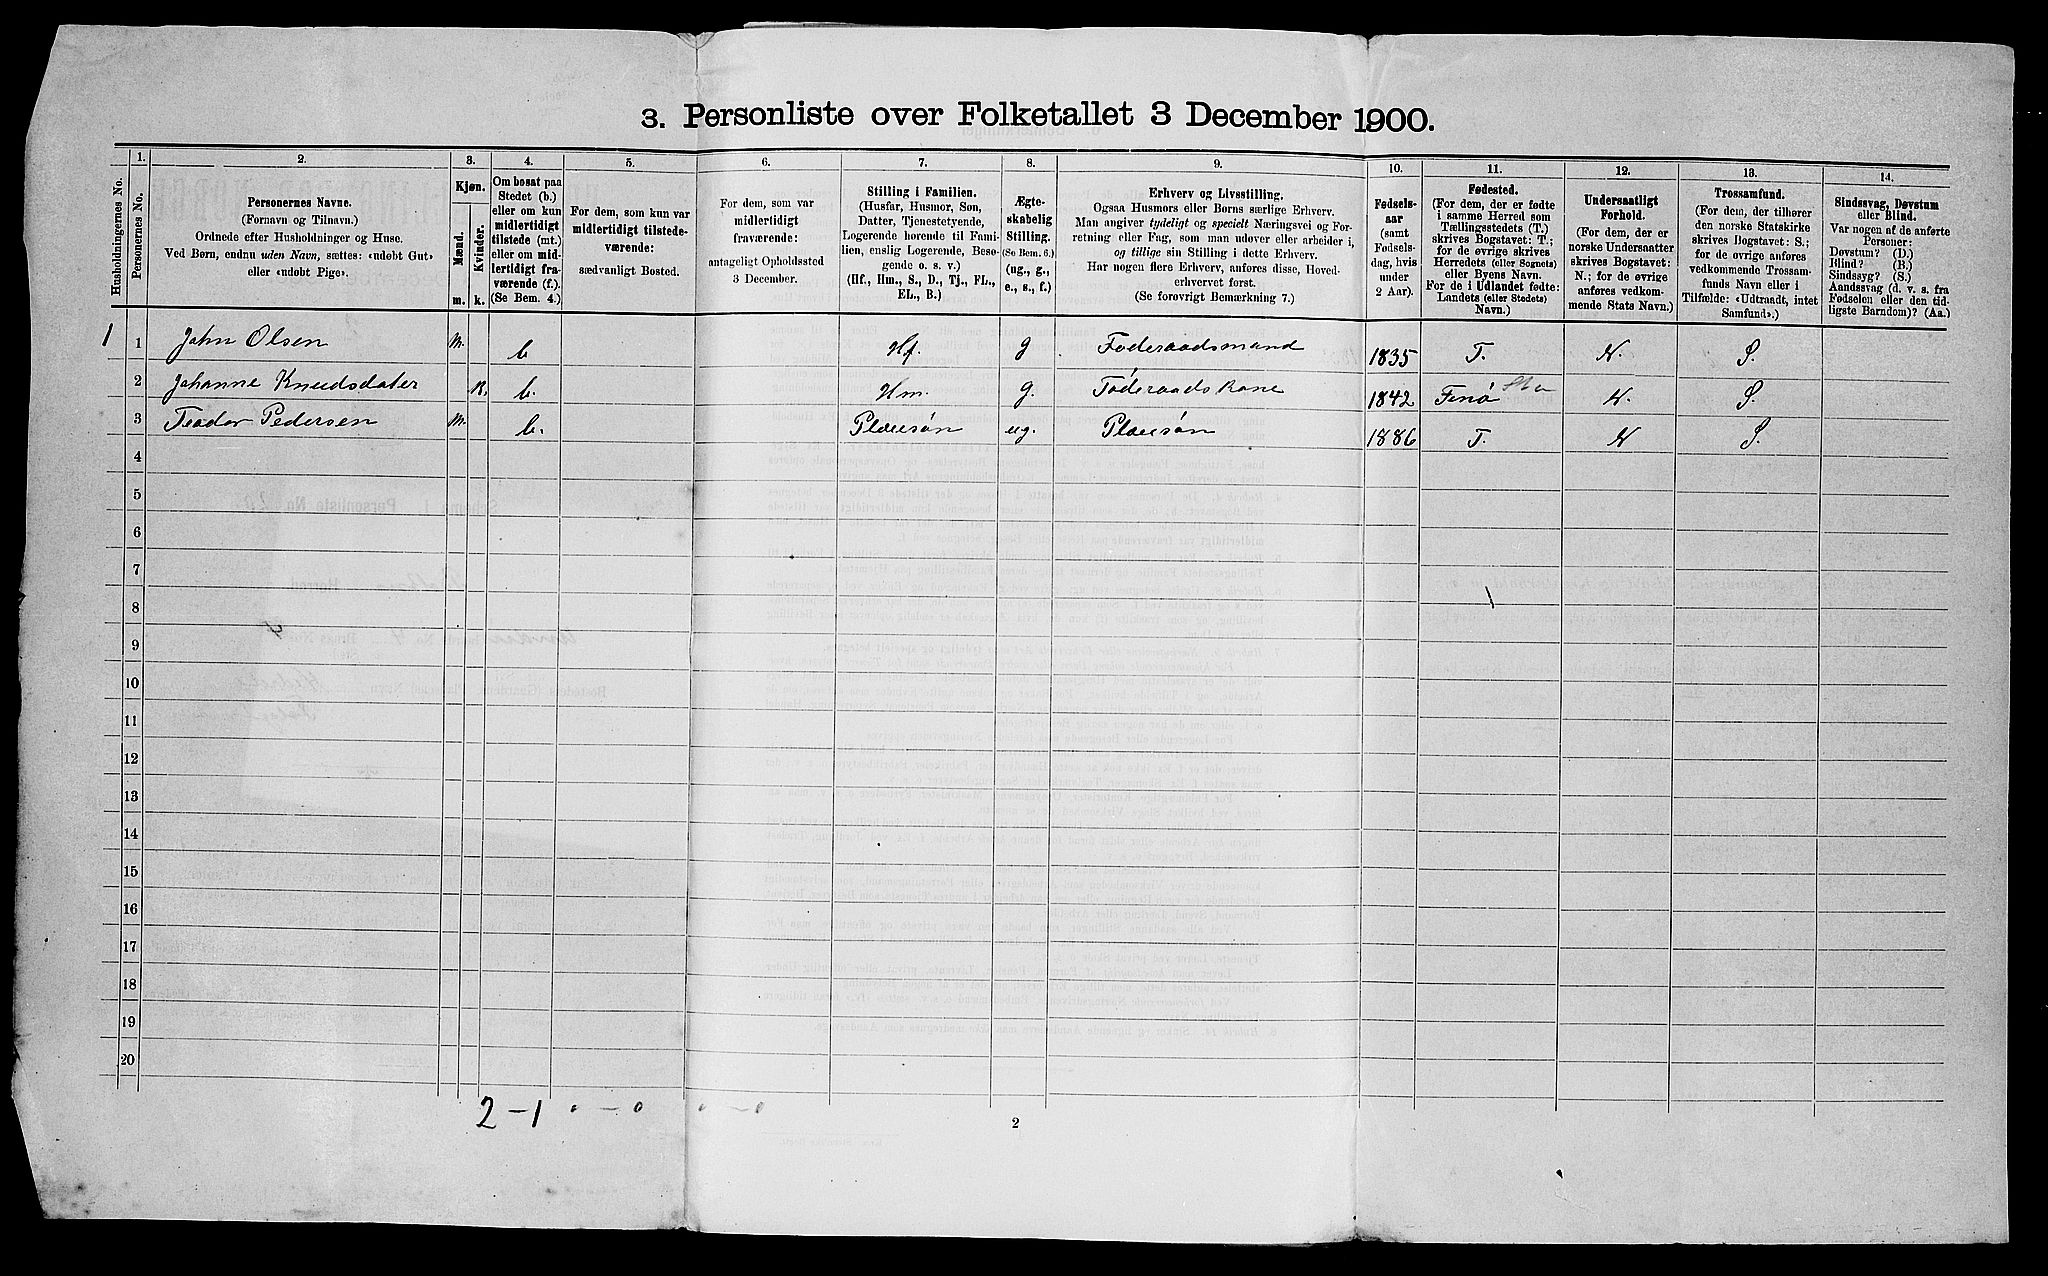 3. Personliste over Folketallet 3 December 1900.
Husholdningernes No.
1.
Personernes No.
2.
Personernes Navne.
(Fornavn og Tilnavn.)
Ordnede efter Husholdninger og Huse.
Ved Børn, endnu uden Navn, sættes: «udøbt Gut»
eller «udøbt Pige».
3.
Kjøn.
Mænd.
m.
Kvinder.
k.
4.
Om bosat paa
Stedet (b.)
eller om kun
midlertidigt
tilstede (mt.)
eller om mid-
lertidigt fra-
værende (f.).
(Se Bem. 4.)
5.
For dem, som kun var
midlertidigt tilstede-
værende:
sædvanligt Bosted.
6.
For dem, som var
midlertidigt
fraværende:
antageligt Opholdssted
3 December.
7.
Stilling i Familien.
(Husfar, Husmor, Søn,
Datter, Tjenestetyende,
Logerende hørende til Fami-
lien, enslig Logerende, Besø-
gende o. s. v.)
(Hf., Hm., S., D., Tj., FL.,
EL., B.)
8.
Ægte-
skabelig
Stilling.
(Se Bem. 6.)
(ug., g.,
e., s., f.)
9.
Erhverv og Livsstilling.
Ogsaa Husmors eller Børns særlige Erhverv.
Man angiver tydeligt og specielt Næringsvei og For-
retning eller Fag, som man udøver eller arbeider i,
og tillige sin Stilling i dette Erhverv.
Har nogen flere Erhverv, anføres disse, Hoved-
erhvervet først.
(Se forøvrigt Bemærkning 7.)
10.
Fødsels-
aar
(samt
Fødsels-
dag, hvis
under
2 Aar).
11.
Fødested.
(For dem, der er fødte
i samme Herred som
Tællingsstedets (T.)
skrives Bogstavet: T.;
for de øvrige skrives
Herredets (eller Sognets)
eller Byens Navn.
For de i Udlandet fødte:
Landets (eller Stedets)
Navn.)
12.
Undersaatligt
Forhold.
(For dem, der er
norske Undersaatter
skrives Bogstavet:
N.; for de øvrige
anføres vedkom-
mende Stats Navn.)
13.
Trossamfund.
(For dem, der tilhører
den norske Statskirke
skrives Bogstavet: S.;
for de øvrige anføres
vedkommende Trossam-
funds Navn eller i
Tilfælde: «Udtraadt, intet
Samfund».)
14.
Sindssvag, Døvstum
eller Blind.
Var nogen af de anførte
Personer:
Døvstum? (D.)
Blind? (B.)
Sindssyg? (S.)
Aandssvag (d. v. s. fra
Fødselen eller den tid-
ligste Barndom)? (Aa.)
1 1 John Olsen m. b Hf. g Føderaadsmand 1835 T. N. S.
2 Johanne Knudsdater K. b. Hm. g. Føderaadskone 1842 Finø N. S.
3 Teodor Pedersen m. b. Pleiesøn ug. Pleiesøn 1886 T. N S.
4
5
6
7
8
9
10
11
12
13
14
15
16
17
18
19
20
2 – 1 0 – 0 0 – 0
2